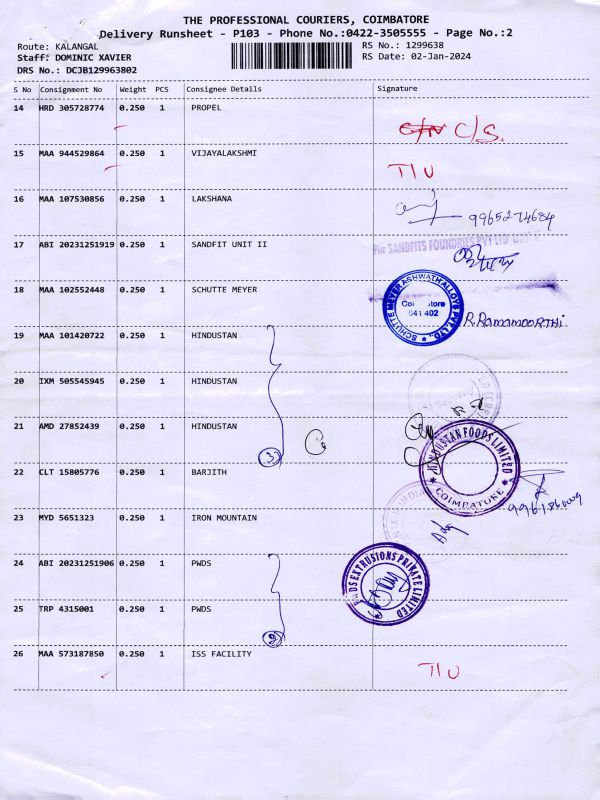 THE PROFESSIONAL COURIERS, COIMBATORE
Delivery Runsheet - P103 - Phone No.:0422-3505555 - Page No.:2
Route: KALANGAL RS No.: 1299638
Staff: DOMINIC XAVIER RS Date: 02-Jan-2024
DRS No.: DCJB129963802
S No Consignment No Weight PCS Consignee Details Signature
14 HRD 305728774 0.250 1 PROPEL
C/S.
15 MAA 944529864 0.250 1 VIJAYALAKSHMI
T/U
16 MAA 107530856 0.250 1 LAKSHANA
9965274684
17 ABI 20231251919 0.250 1 SANDFIT UNIT II
For SANDFITS FOUNDRIES PVT LTD UNIT II
18 MAA 102552448 0.250 1 SCHUTTE MEYER
SCHUTTE MEYER ASHWATH ALLOYS PVT. LTD.,
641 402
R. RAMAMOORTHI.
19 MAA 101420722 1 0.250 HINDUSTAN
20 IXM 505545945 0.250 1 HINDUSTAN
21 AMD 27852439 0.250 1 HINDUSTAN
3
HINDUSTAN FOODS LIMITED
COIMBATORE
22 CLT 15805776 0.250 1 BARJITH
23 MYD 5651323 0.250 1 IRON MOUNTAIN
24 ABI 20231251906 0.250 1 PWDS
DS EXTRUSIONS PRIVATE LIMITED
25 TRP 4315001 0.250 1 PWDS
2
26 MAA 573187850 0.250 1 ISS FACILITY
T/U